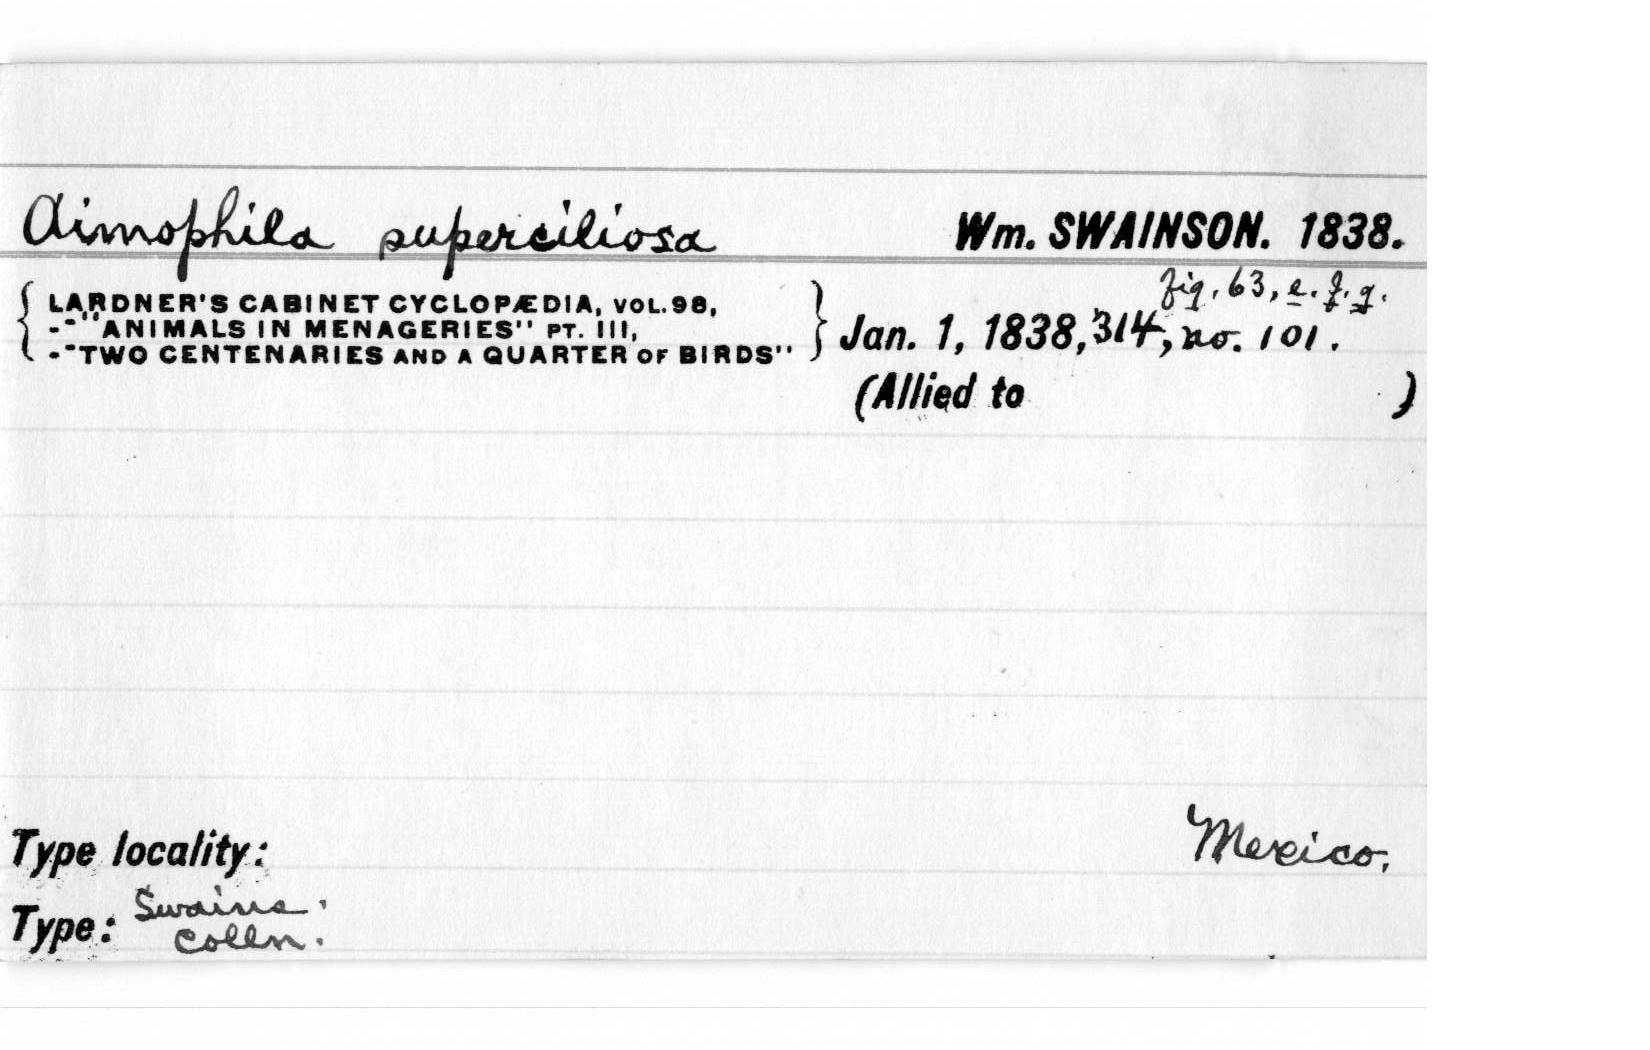 Aimophila superciliosa Wm. SWAINSON. 1838.
fig. 63, e. f. g.
LARDNER'S CABINET CYCLOPÆDIA, VOL. 98,
--"ANIMALS IN MENAGERIES" PT. III,
--"TWO CENTENARIES AND A QUARTER OF BIRDS" Jan. 1, 1838, 314, no. 101.
(Allied to )
Mexico,
Type locality:
Type: Swains.
Colln.